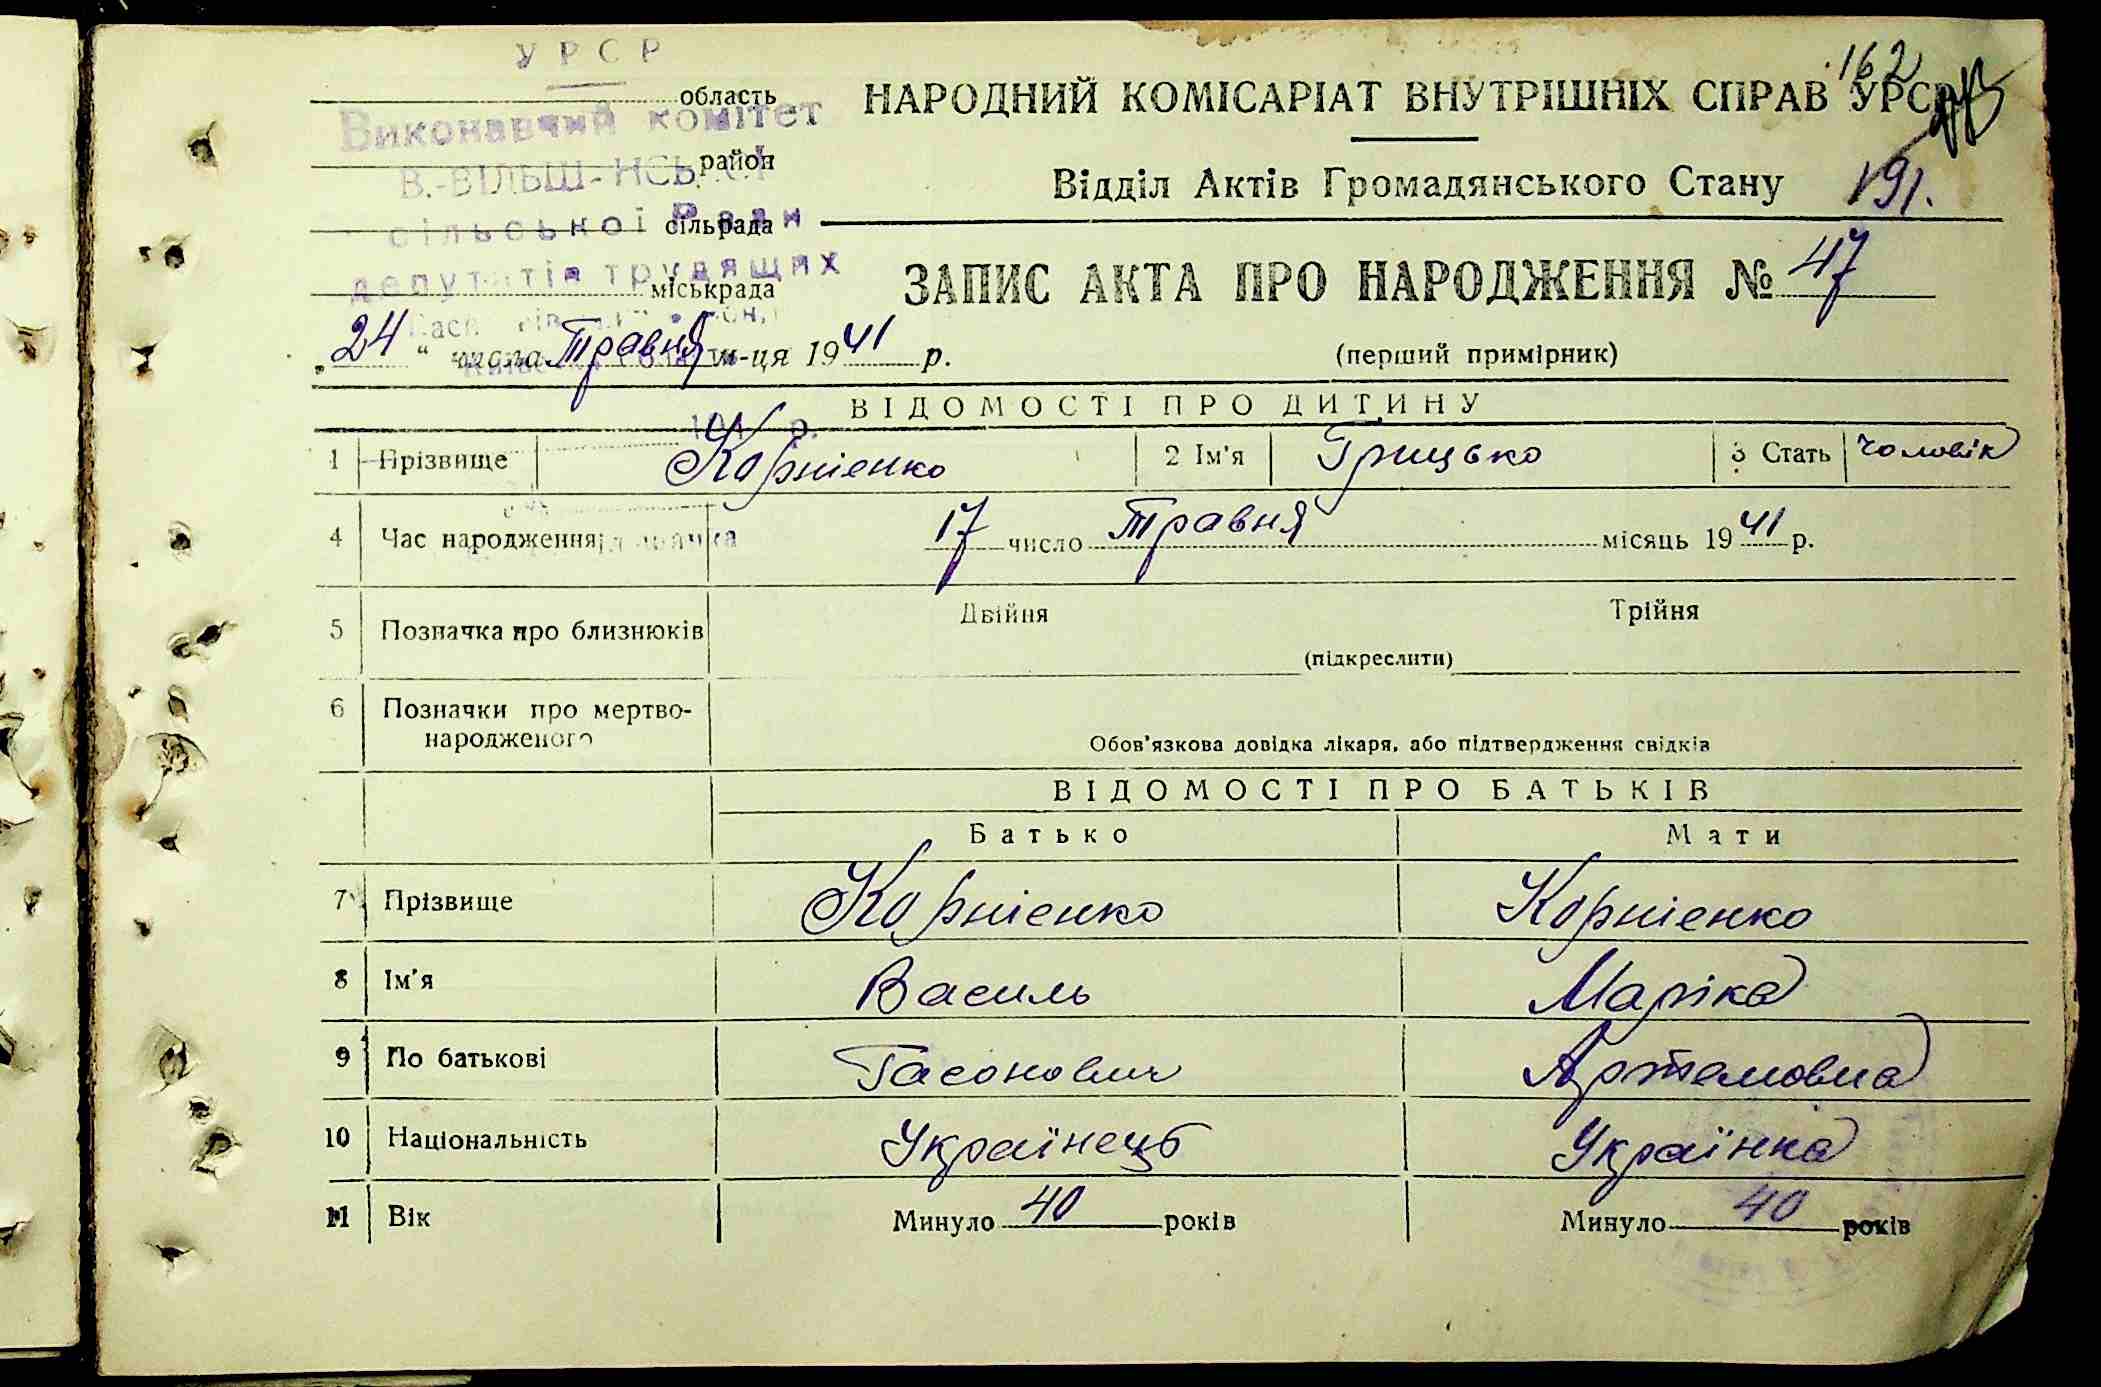 УРСР
область
162
НАРОДНИЙ КОМІСАРІАТ ВНУТРІШНІХ СПРАВ УРСР
Виконавчий комітет
район
Відділ Актів Громадянського Стану 191.
сільської Ради
сільрада
депутатів трудящих
міськрада
ЗАПИС АКТА ПРО НАРОДЖЕННЯ № 47
„24“ числа Травня м-ця 1941 р.
(перший примірник)
ВІДОМОСТІ ПРО ДИТИНУ
1 Прізвище Корнієнко 2 Ім'я Грицько 3 Стать чоловік
4 Час народження 17 число Травня місяць 1941 р.
5 Позначка про близнюків Двійня Трійня
(підкреслити)
6 Позначки про мертво-
народженого
Обов'язкова довідка лікаря, або підтвердження свідків
ВІДОМОСТІ ПРО БАТЬКІВ
Батько Мати
7 Прізвище Корнієнко Корнієнко
8 Ім'я Василь Маріка
9 По батькові Гасонович Артемовна
10 Національність Українець Українка
11 Вік Минуло 40 років Минуло 40 років